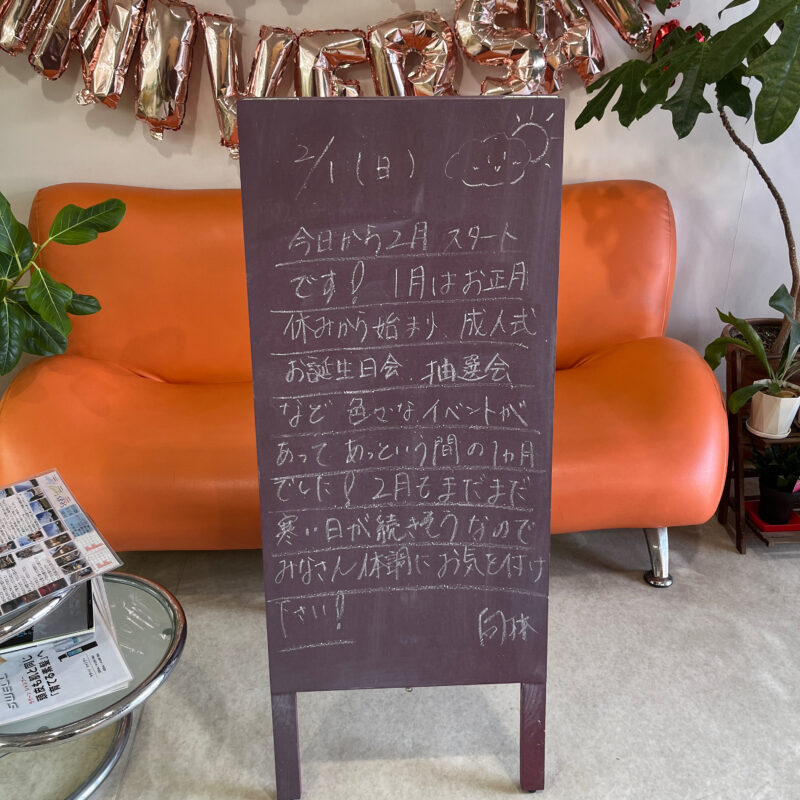 2/1(日)
今日から2月 スタート
です! 1月はお正月
休みから始まり、成人式
お誕生日会、抽選会
など 色々なイベントが
あって あっという間の1ヵ月
でした! 2月もまだまだ
寒い日が続きそうなので
みなさん体調にお気を付け
下さい!